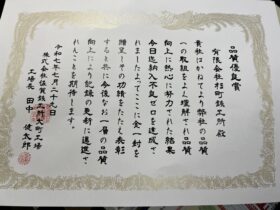 品質優良賞
有限会社桂町鉄工所殿
貴社はかねてより弊社の品質
への取組をよく理解され品質
向上に熱心に努力された結果
今日迄納入不良ゼロを達成さ
れましたよってここに金一封を
贈呈しその功績をたたえ表彰
すると共に今後なお一層の品質
向上により記録の更新に邁進さ
れんことを期待します
令和七年七月二十九日
株式会社佐賀鉄工所大町工場
工場長 田中 健太郎